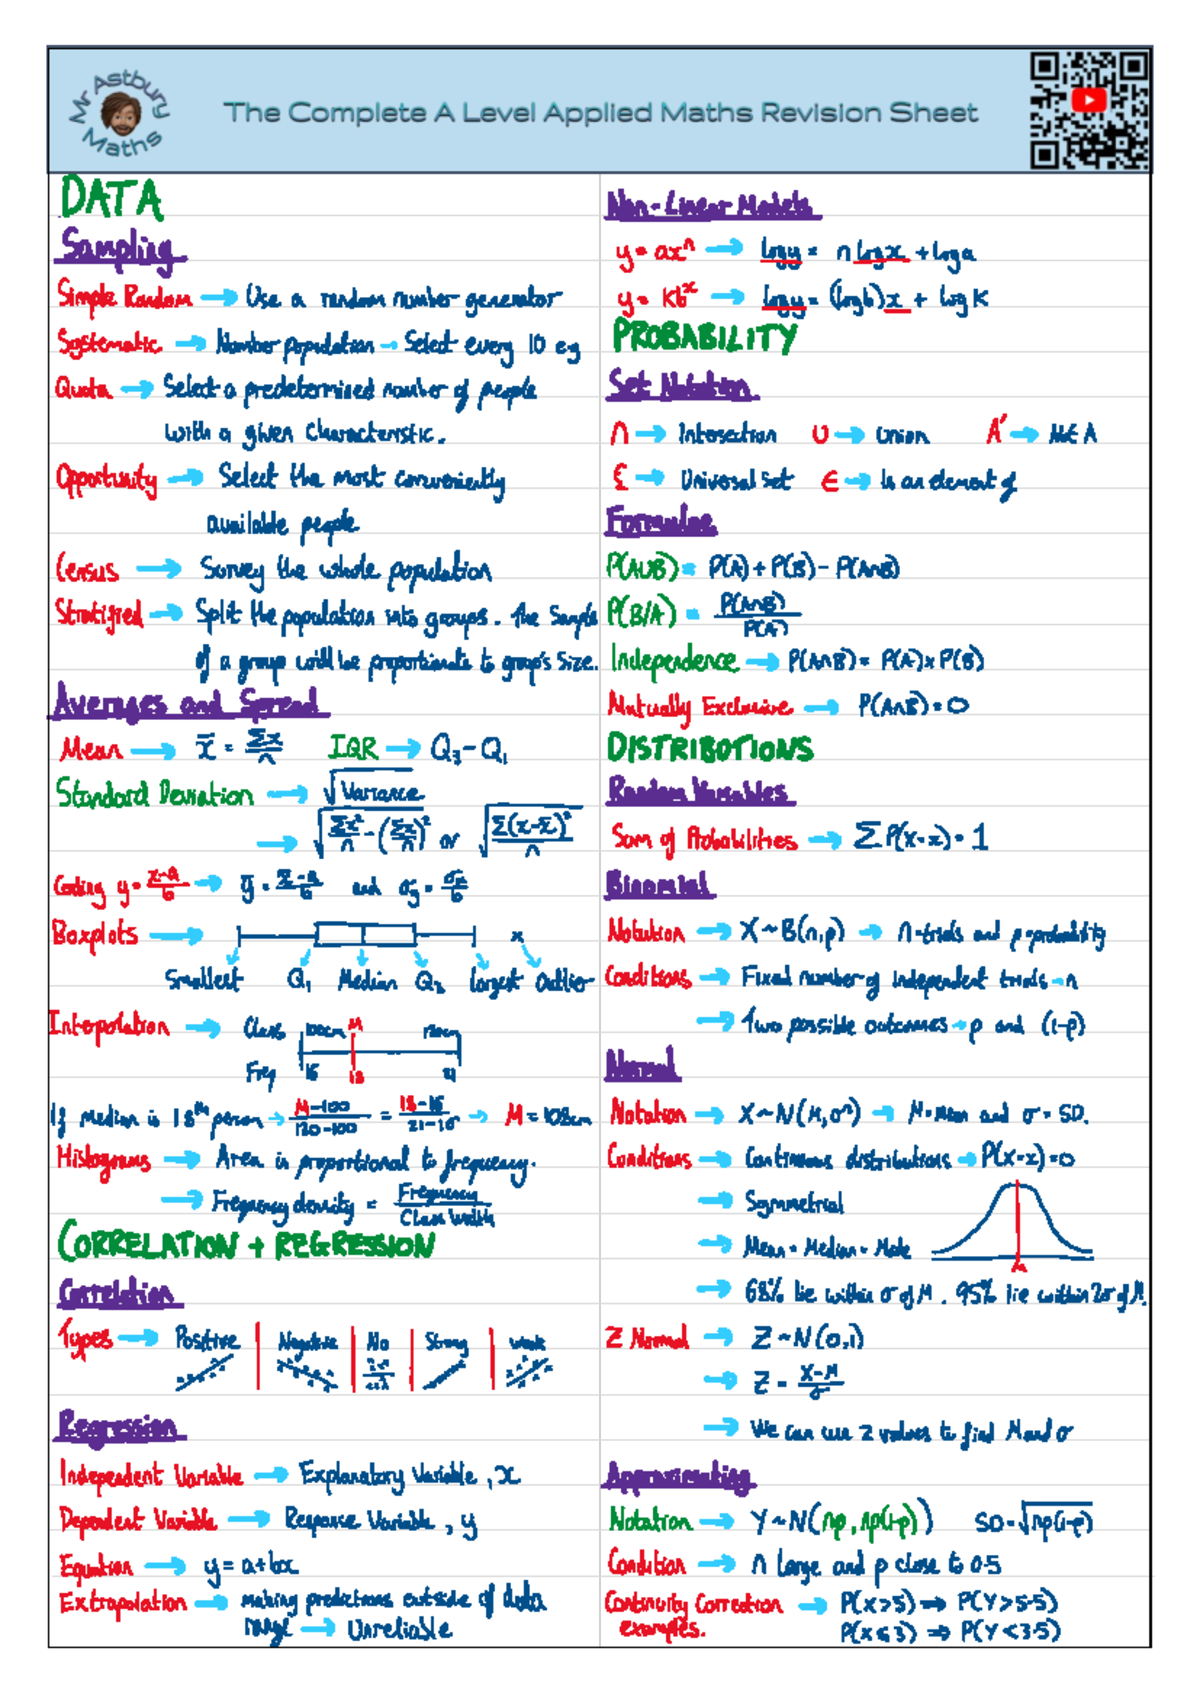 Mr Astbury Maths
The Complete A Level Applied Maths Revision Sheet
DATA
Sampling
Simple Random → Use a random number generator
Systematic → Number population → Select every 10 eg
Quota → Select a predetermined number of people
with a given characteristic.
Opportunity → Select the most conveniently
available people
Census → Survey the whole population
Stratified → Split the population into groups. The Sample
of a group will be proportionate to group's size.
Averages and Spread
Mean → x̄ = Σx/n IQR → Q₃ - Q₁
Standard Deviation → √Variance
→ √(Σx²/n - (Σx/n)²) or √(Σ(x-x̄)²/n)
Coding y = (x-a)/b → ȳ = (x̄-a)/b and σy = σx/b
Boxplots → x
Smallest Q₁ Median Q₃ largest Outlier
Interpolation → Class 100cm M 120cm
Freq 16 18 21
If median is 18th person → (M-100)/(120-100) = (18-16)/(21-16) → M = 108cm
Histograms → Area is proportional to frequency.
→ Frequency density = Frequency/Class Width
CORRELATION + REGRESSION
Correlation
Types → Positive | Negative | No | Strong | weak
Regression
Independent Variable → Explanatory Variable, x
Dependent Variable → Response Variable, y
Equation → y = a+bx
Extrapolation → making predictions outside of data
range → Unreliable
Non-Linear Models
y = axⁿ → logy = nlogx + loga
y = Kbˣ → logy = (logb)x + logK
PROBABILITY
Set Notation
∩ → Intersection ∪ → Union A' → Not A
ξ → Universal Set ∈ → Is an element of
Formulae
P(A∪B) = P(A) + P(B) - P(A∩B)
P(B/A) = P(A∩B)/P(A)
Independence → P(A∩B) = P(A)×P(B)
Mutually Exclusive → P(A∩B) = 0
DISTRIBUTIONS
Random Variables
Sum of Probabilities → ΣP(X=x) = 1
Binomial
Notation → X~B(n,p) → n=trials and p=probability
Conditions → Fixed number of independent trials → n
→ Two possible outcomes → p and (1-p)
Normal
Notation → X~N(μ,σ²) → μ=Mean and σ=SD.
Conditions → Continuous distributions → P(X=x)=0
→ Symmetrical
→ Mean = Median = Mode
μ
→ 68% lie within σ of μ. 95% lie within 2σ of μ.
Z Normal → Z~N(0,1)
→ Z = (X-μ)/σ
→ We can use z values to find μ and σ
Approximating
Notation → Y~N(np, np(1-p)) SD=√np(1-p)
Condition → n large and p close to 0.5
Continuity Correction → P(X>5) ⇒ P(Y>5.5)
examples. P(X≤3) ⇒ P(Y<3.5)